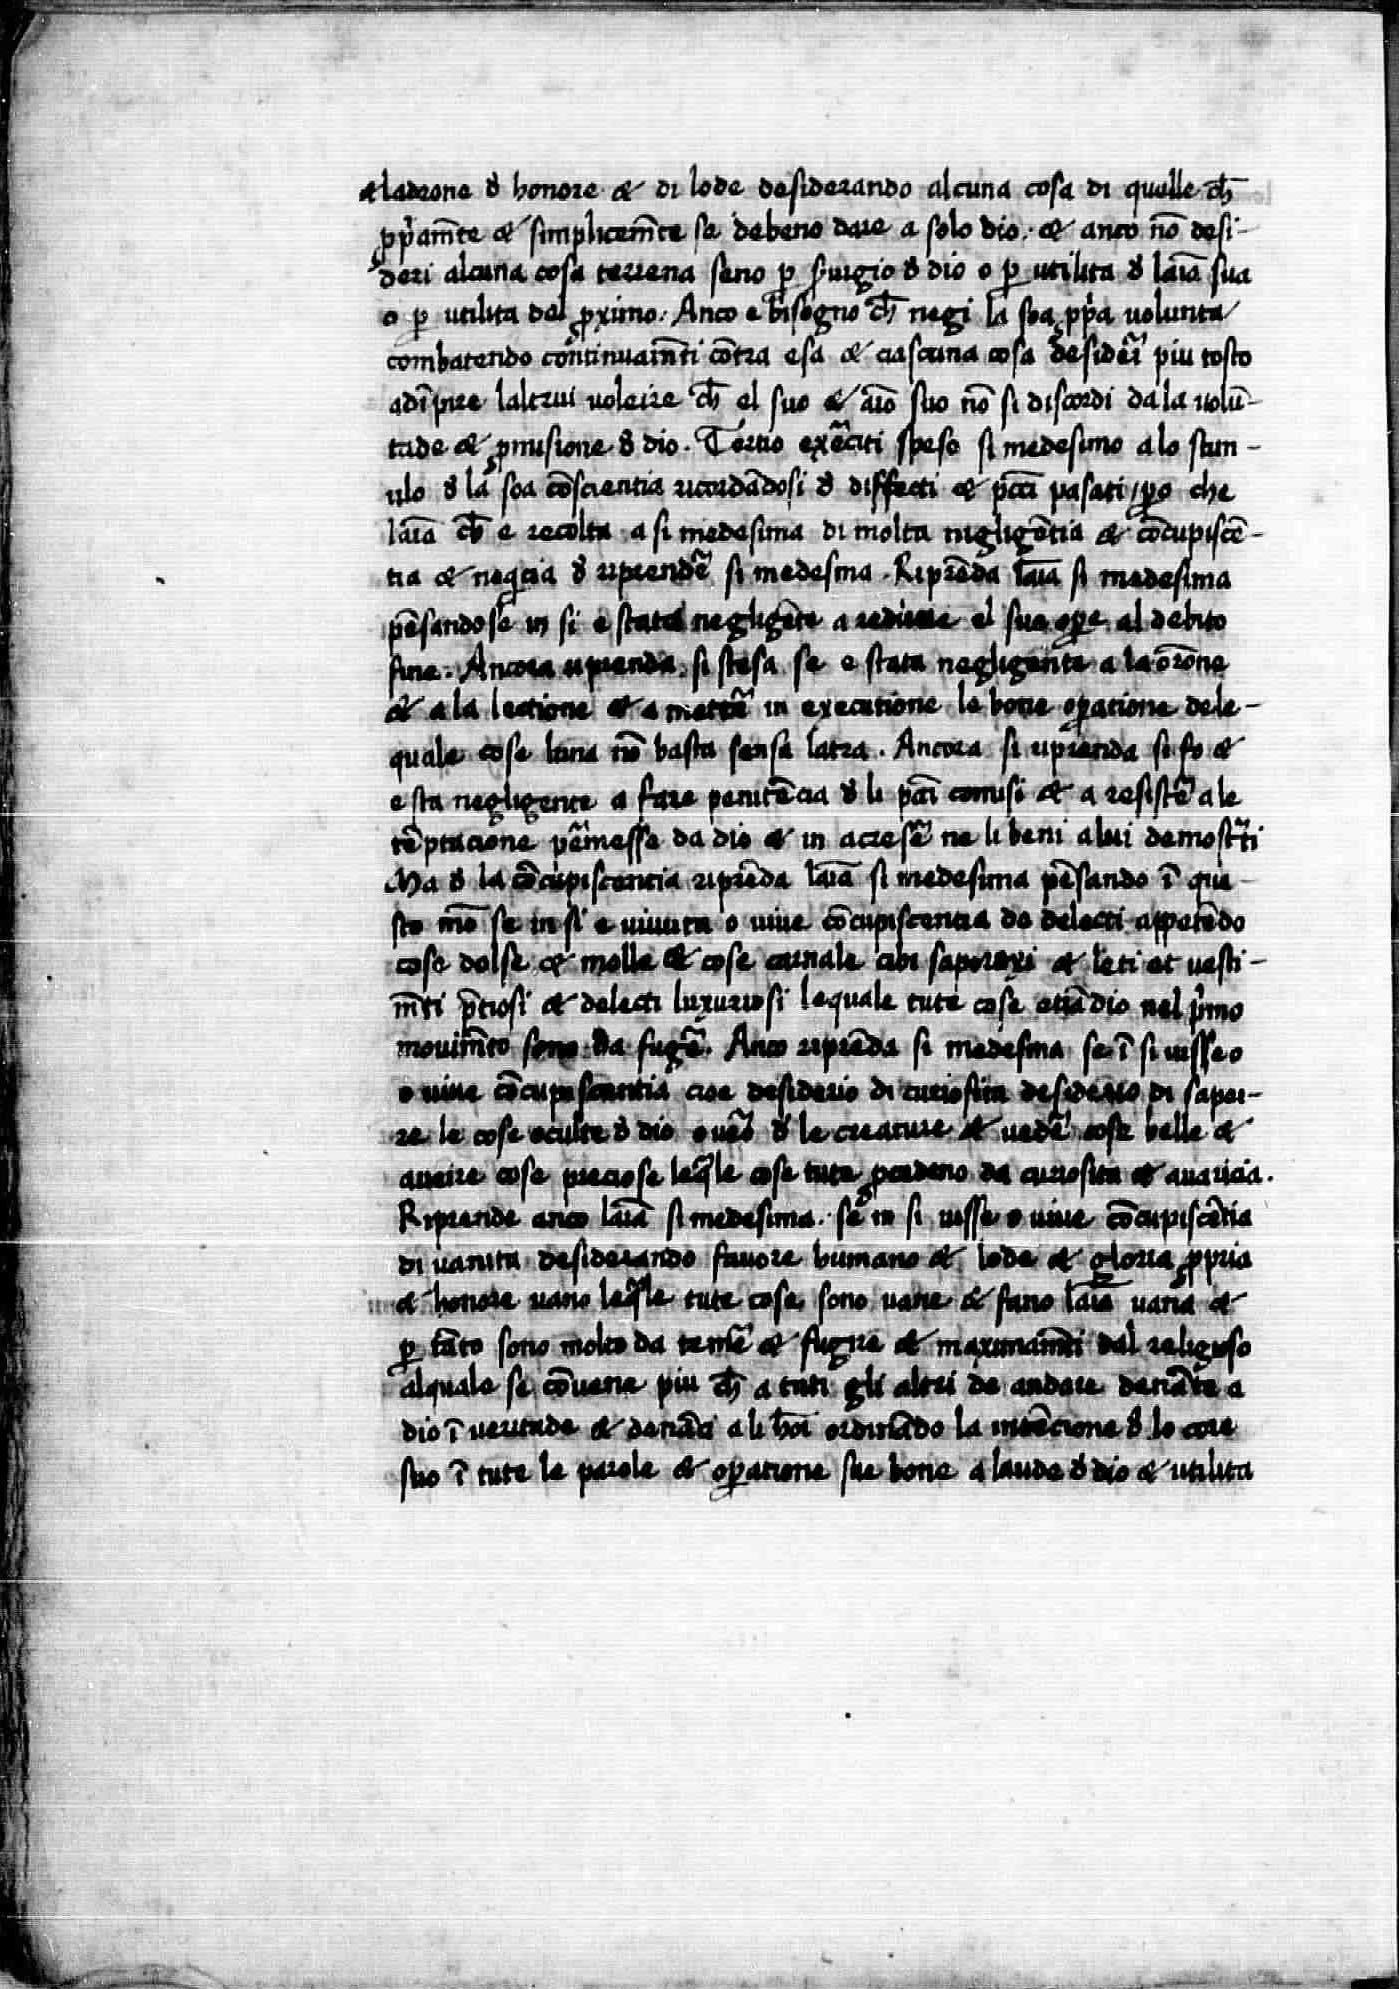 & ladrone đ honore & di lode desiderando alcuna cosa di quelle ch̄
p̱p̄am̄te & simplicem̄te se debeno dare a solo dio. & anco nō desi-
deri alcuna cosa terrena seno ꝑ s̄uigio đ dio o ꝑ utilita đ laīa sua
o ꝑ utilita del ꝓximo. Anco e bisogno ch̄ negi la soa ꝓp̄a uolunta
combatendo continuam̄ti cōtra esa & ciascuna cosa desider̄ piu tosto
adīpire laltrui uoleire ch̄ el suo & aīo suo nō si discordi da la uolū-
tade & ꝓuisione đ dio. Tertio exēciti speso si medesimo a lo stim-
ulo đ la soa cōscientia ricordādosi đ diffecti & pc̄ci pasati / ꝑo che
laīa ch̄ e recolta a si medesima di molta nigligētia & cōcupiscē-
tia & neq̄cia đ riprender̄ si medesma. Riprēda laīa si medesima
pēsando se in si e stata negligēte a redure el suo oꝑe al debito
fine. Ancora riprenda si stesa se e stata negligente a la orōne
& a la lectione & a metter̄ in executione le bone oꝑatione dele-
quale cose luna nō basta sensa latra. Ancora si riprenda si fo &
e sta negligente a fare penitēcia đ li pc̄ci comisi & a resister̄ a le
tēptacione ꝑmesse da dio & in acreser̄ ne li beni a lui demostr̄ti
Ma đ la cōcupiscentia riprēda laīa si medesima pēsando ī que-
sto mō se in si e uiuuta o uiue cōcupiscentia de delecti appetēdo
cose dolse & molle & cose carnale cibi saporoxi & leti et uesti-
m̄ti p̄ciosi & delecti luxuriosi lequale tute cose etiādio nel p̄mo
mouim̄to sono da fugir̄. Anco riprēda si medesma se ī si uisse o
o uiue cōcupiscentia cioe desiderio di curiosita desiderio di sapei-
re le cose oculte đ dio ouer̄o đ le creature & ueder̄ cose belle &
aueire cose preciose leq̄le cose tute ꝓcedeno da curiosita & auaricia.
Riprende anco laīa si medesima. se in si uisse o uiue cōcupiscētia
di uanita desiderando fauore humano & lode & gloria ꝓpria
& honore uano leq̄le tute cose sono uane & fano laīa uana &
ꝑ tāto sono molto da temer̄ & fugire & maximam̄ti dal religioso
alquale se cōuene piu ch̄ a tuti gli altri de andare denāte a
dio ī ueritade & denāci a li hoī ordinādo la intēcione đ lo core
suo ī tute le parole & oꝑatione sue bone a laude đ dio & utilita